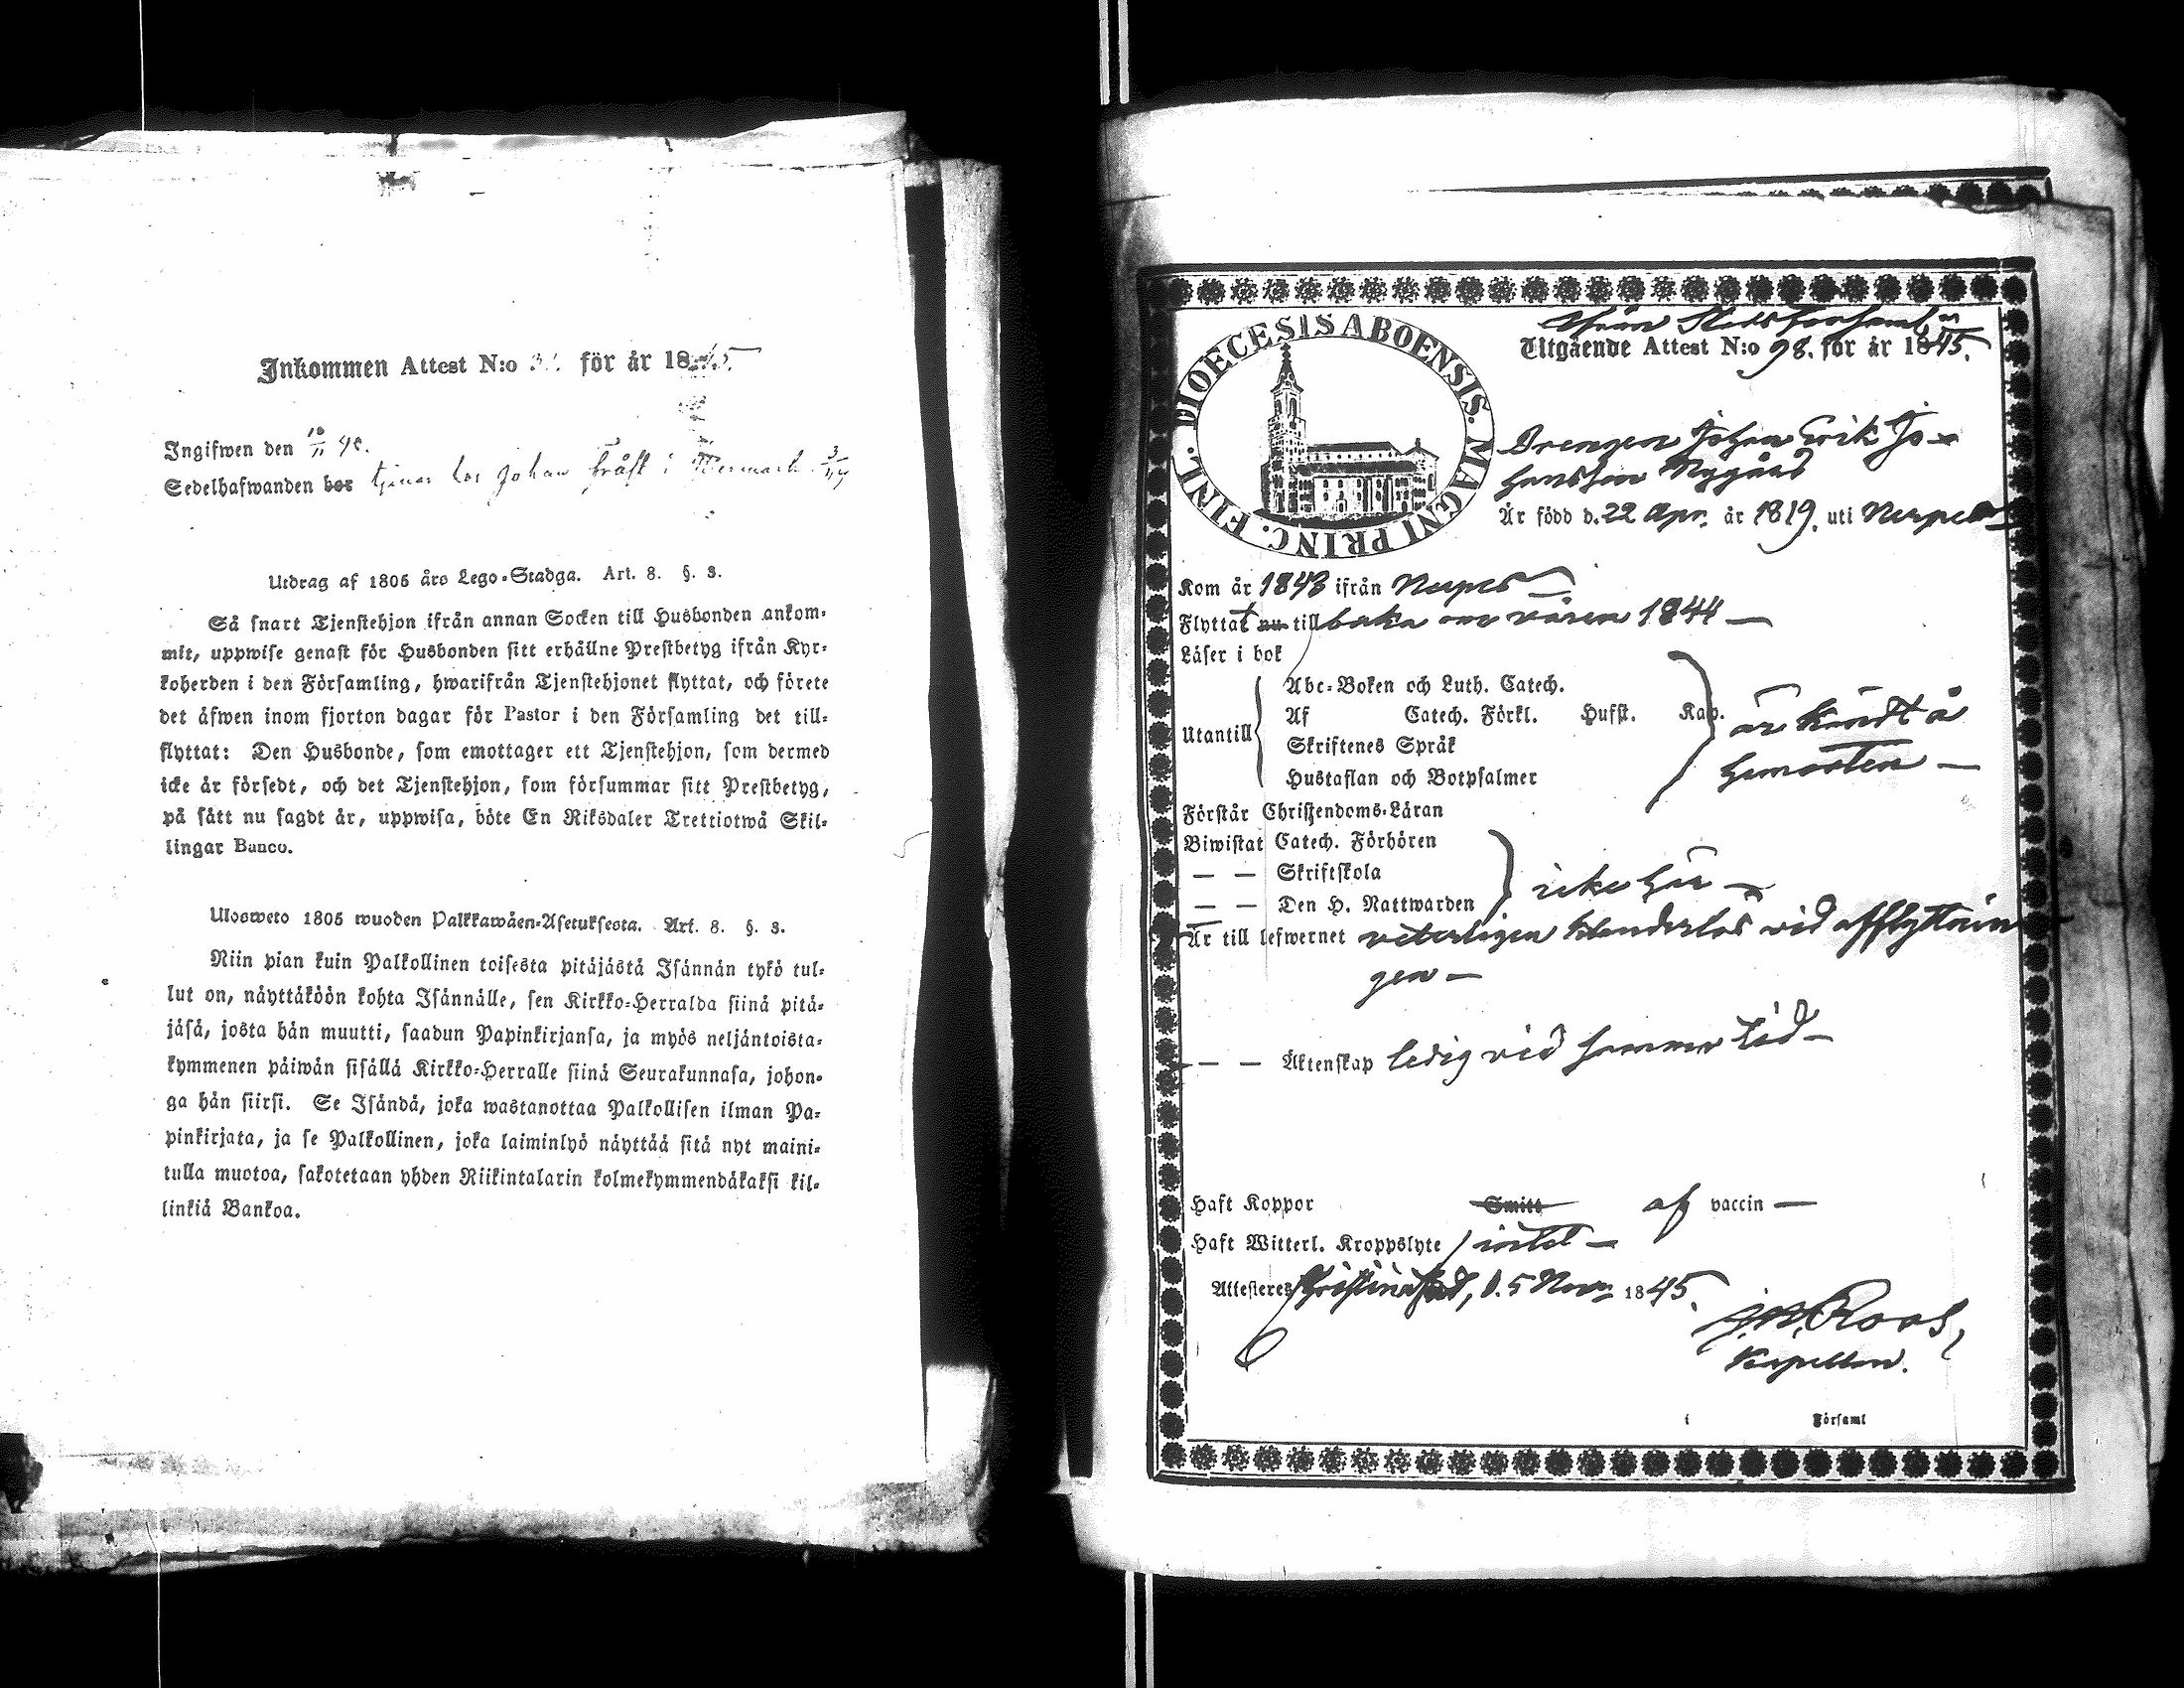 Inkommen Attest N:o för år 1845
Ingifwen den
Sedelhafwanden bor tjenar hos Johan
Utdrag af 1805 års Lego-Stadga. Art. 8. §. 3.
Så snart Tjenstehjon ifrån annan Socken till Husbonden ankom-
mit, uppwise genast för Husbonden sitt erhållne Prestbetyg ifrån Kyr-
koherden i den Församling, hwarifrån Tjenstehjonet flyttat, och förete
det äfwen inom fjorton dagar för Pastor i den Församling det till-
flyttat: Den Husbonde, som emottager ett Tjenstehjon, som dermed
icke är försedt, och det Tjenstehjon, som försummar sitt Prestbetyg,
på sätt nu sagdt är, uppwisa, böte En Riksdaler Trettiotwå Skil-
lingar Banco.
Ulosweto 1805 wuoden Palkkawäen-Asetuksesta. Art. 8. §. 3.
Niin pian kuin Palkollinen toisesta pitäjästä Isännän tykö tul-
lut on, näyttäköön kohta Isännälle, sen Kirkko-Herralda siinä pitä-
jäsä, josta hän muutti, saadun Papinkirjansa, ja myös neljäntoista-
kymmenen päiwän sisällä Kirkko-Herralle siinä Seurakunnasa, johon-
ga hän siirsi. Se Isändä, joka wastanottaa Palkollisen ilman Pa-
pinkirjata, ja se Palkollinen, joka laiminlyö näyttää sitä nyt maini-
tulla muotoa, sakotetaan yhden Riikintalarin kolmekymmendäkaksi kil-
linkiä Bankoa.
DIOECESIS ABOENSIS. MAGNI PRINC. FINL.
ifrån Stadsförsaml:n
Utgående Attest N:o 98. för år 1845.
Drengen Johan Erik Jo-
hansson Nygård
Är född d. 22 Apr. år 1819. uti Nerpes
Kom år 1843 ifrån Nerpes
Flyttat nu till baka om våren 1844
Läser i bok
Abc-Boken och Luth. Catech.
Utantill Af Catech. Förkl. Husst. Kap. är kändt å
Skriftenes Språk
hemorten
Hustaflan och Botpsalmer
Förstår Christendoms-Läran
Biwistat Catech. Förhören
— — Skriftskola icke här
— — Den H. Nattwarden
Är till lefwernet veterligen klanderlös vid afflyttnin
gen
— — Äktenskap ledig vid samma tid
Haft Koppor Smitt af vaccin
Haft Witterl. Kroppslyte intet
Attesteres Christinestad, d. 5 Nov. 1845.
Roos,
Kapellan.
i Församl